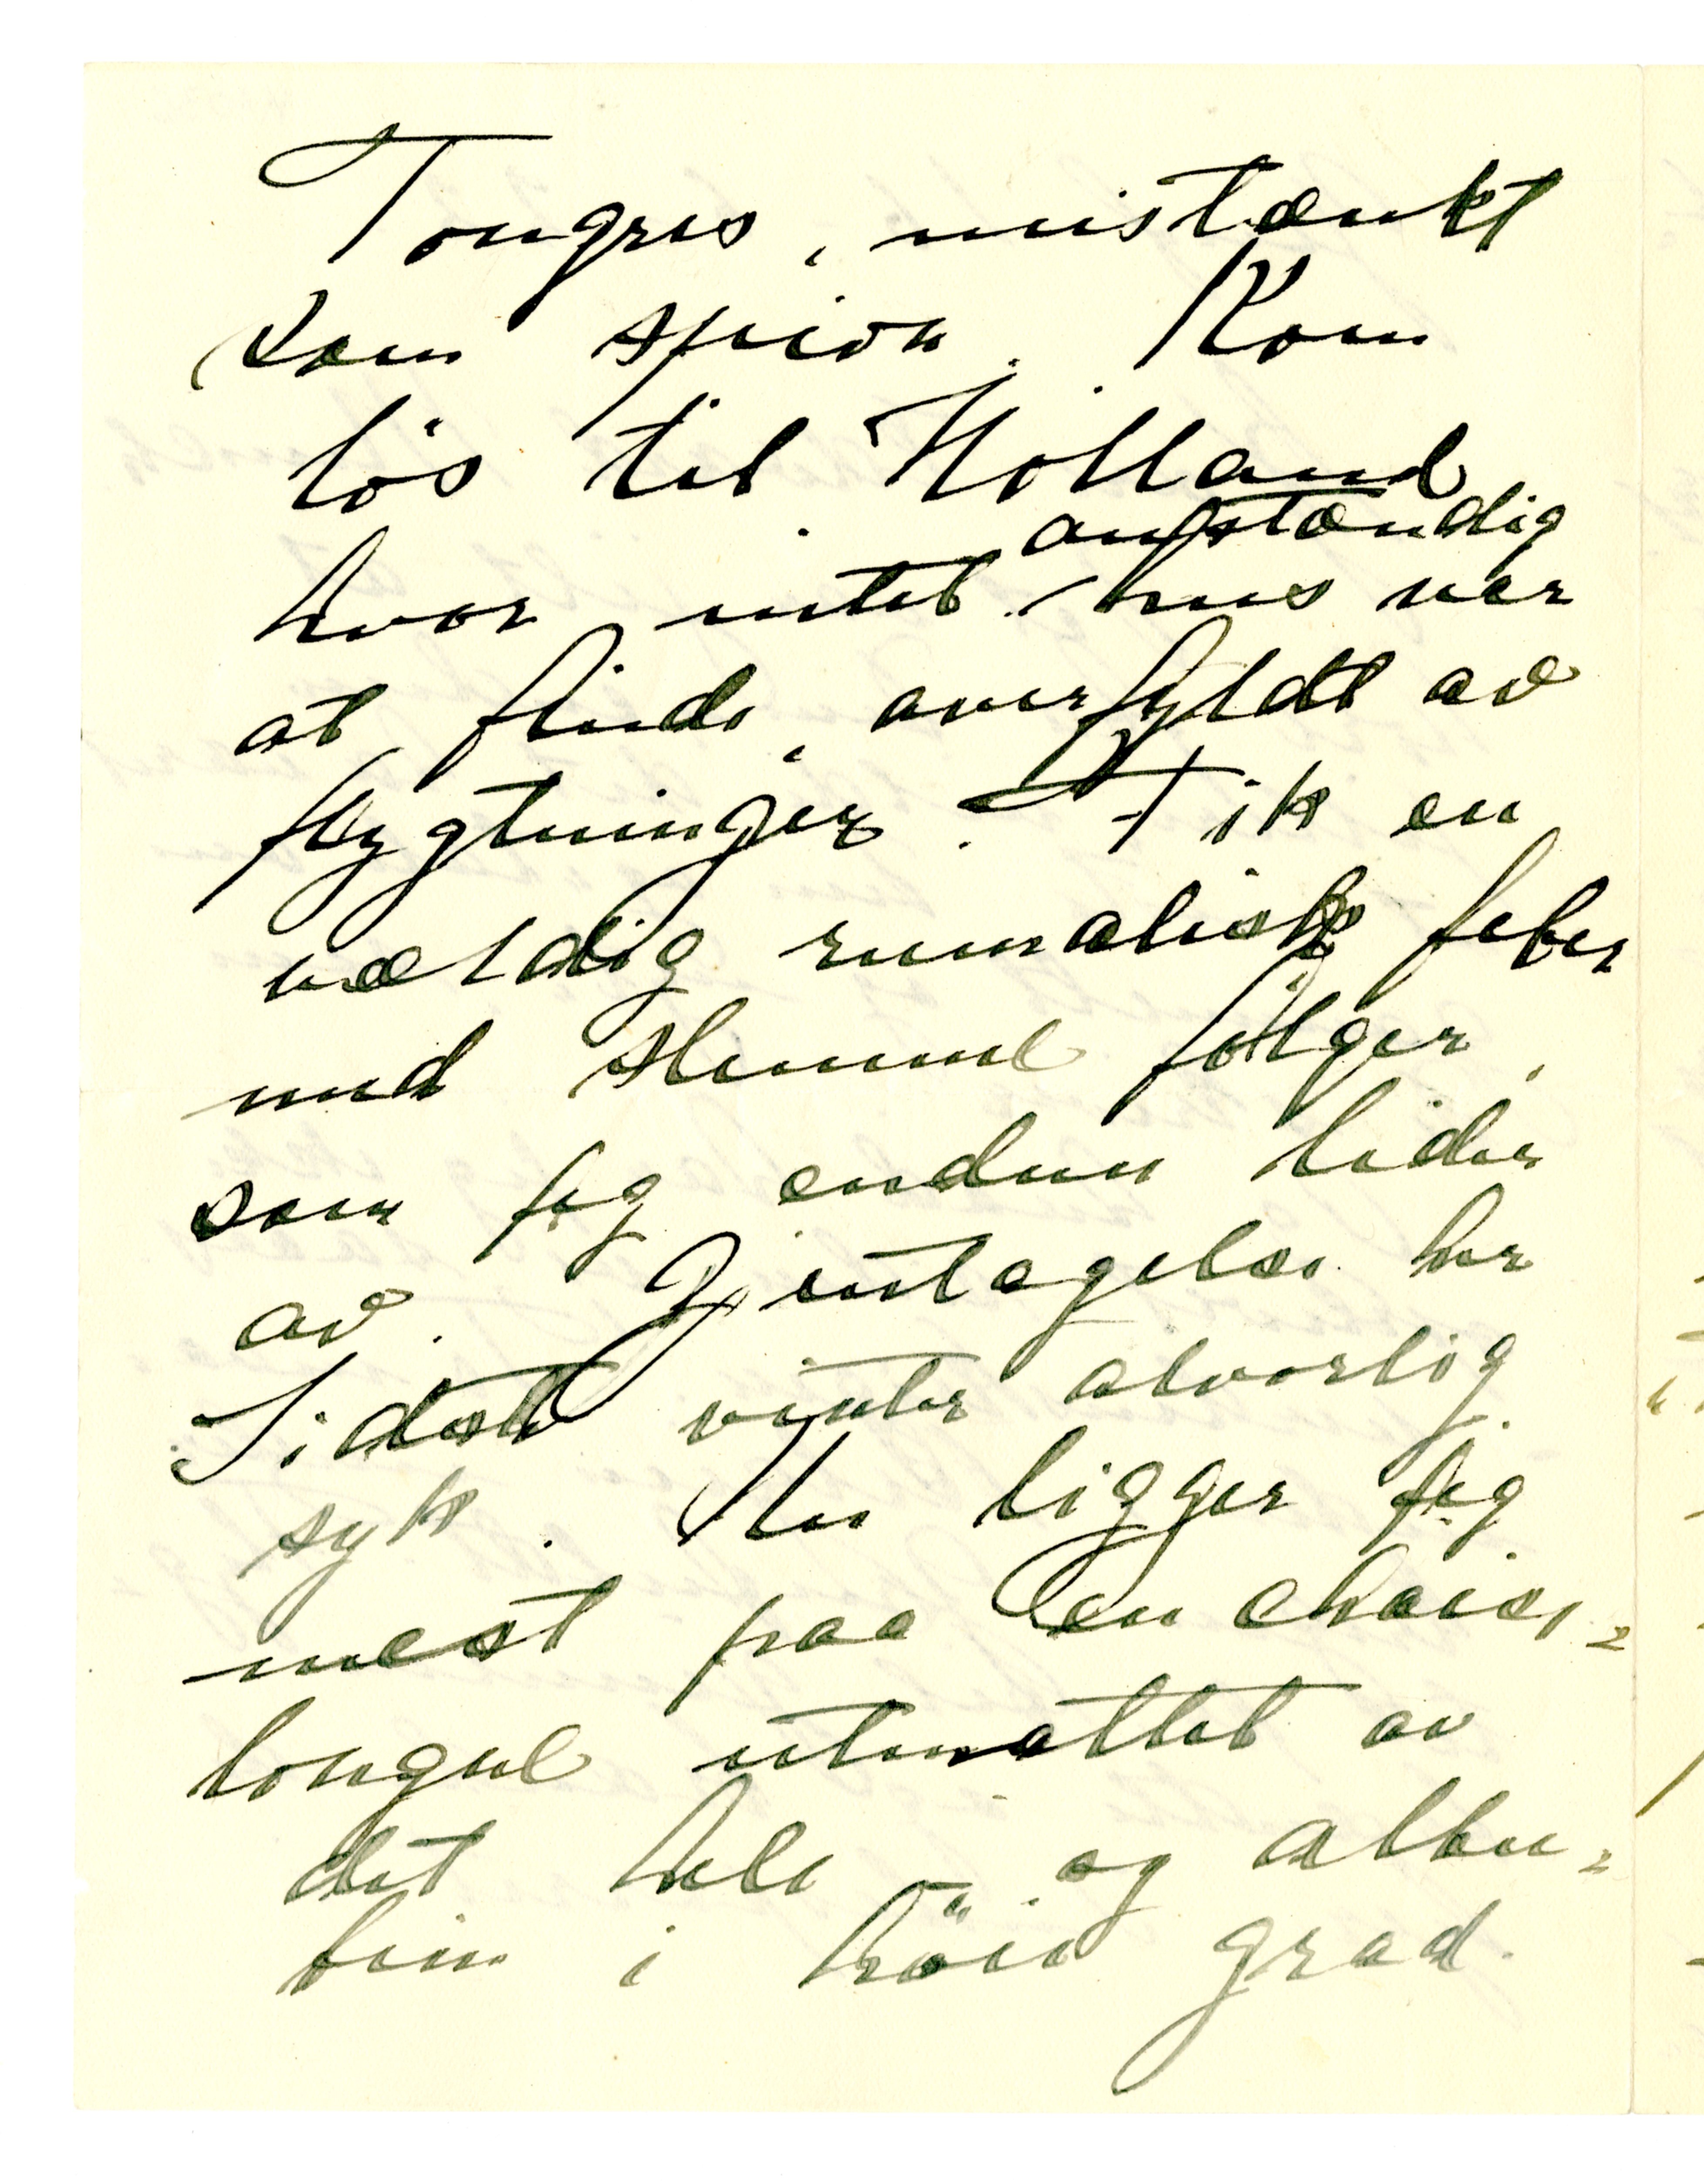 Tongres, mistænkt
som spion. Kom
løs til Holland
anstændig
hvor intet hus var
at finde, overfyldt av
flygtninger. Fik en
vældig rumatisk feber
med slemme følger,
som jeg endnu lider
av. Gjentagelse her
Sidste vinter alvorlig
syk. Nu ligger jeg
mest paa en chaise=
longue utmattet av
det hele – og albu=
min i höie grad.